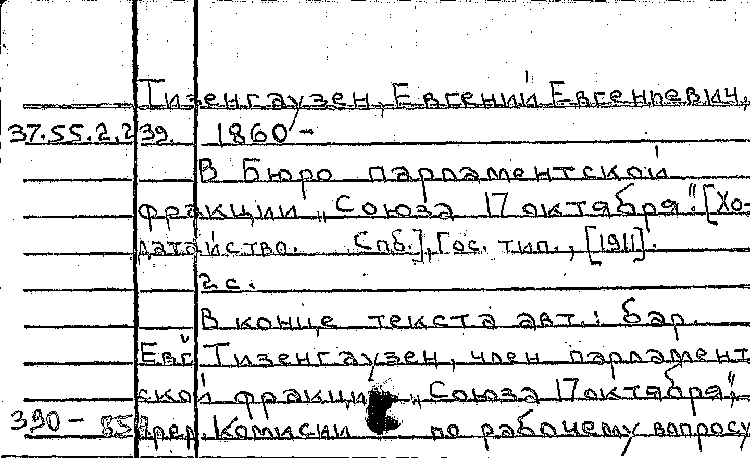 Тизенгаузен, Евгений Евгеньевич,
37.55.2.239. 1860 –
В Бюро парламентской
фракции „Союза 17 октября". [Хо-
датайство. Спб.], Гос. тип., [1911].
2 с.
В конце текста авт.: бар.
Евг. Тизенгаузен, член парламент
ской фракции „Союза 17 октября",
390 – пред. Комиссии по рабочему вопросу